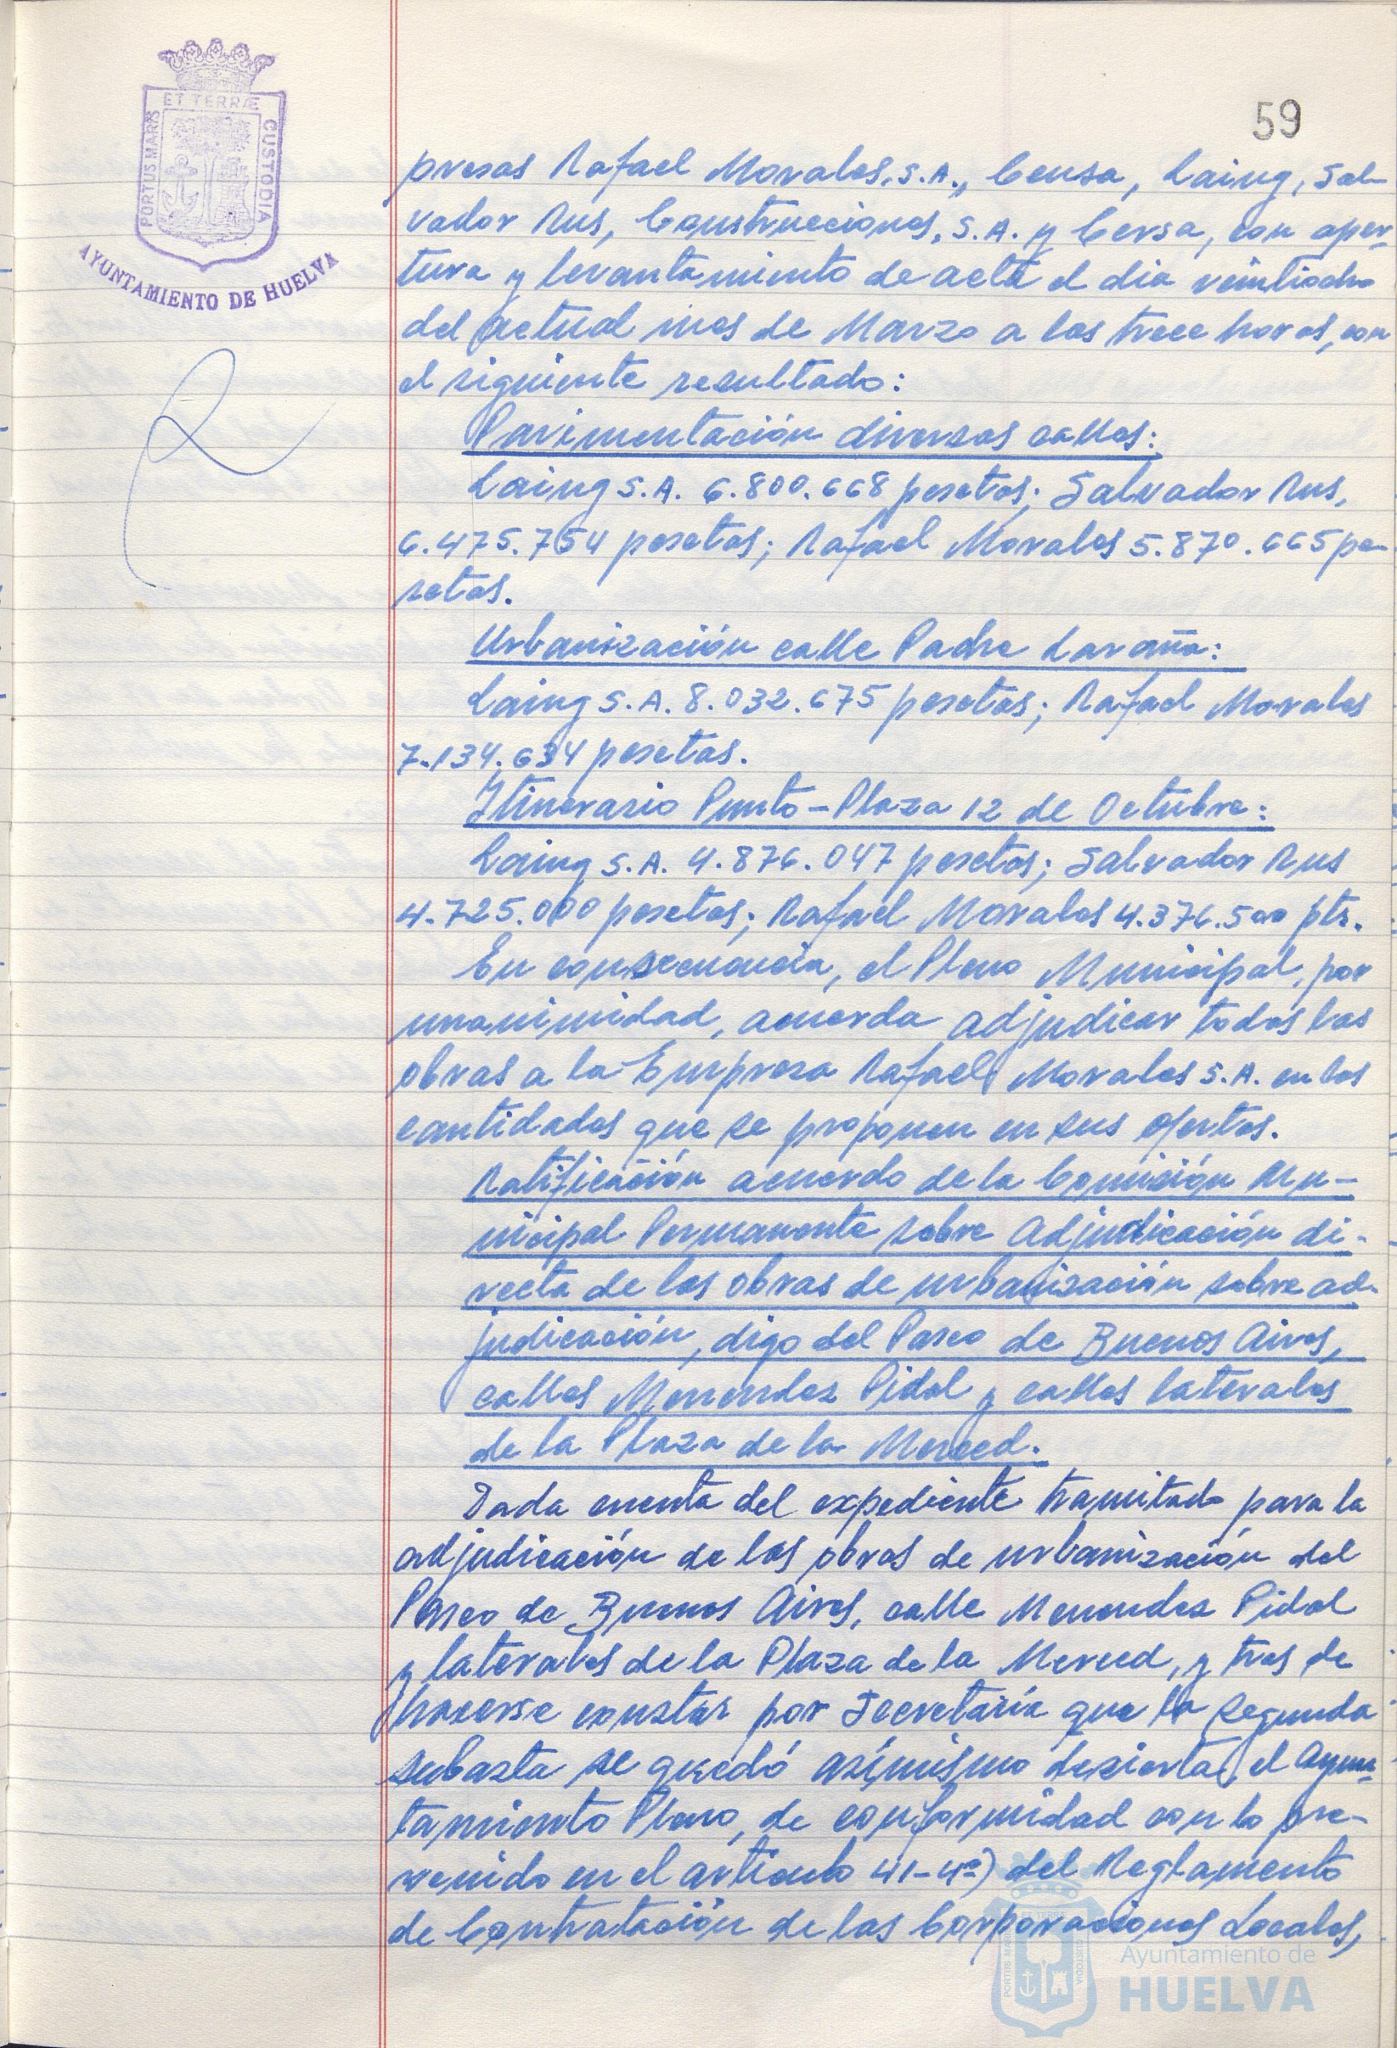 59
ET TERRÆ
PORTUS MARIS
CUSTODIA
AYUNTAMIENTO DE HUELVA
presas Rafael Morales, S.A., Censa, Laing, Sal-
vador Rus, Construcciones, S.A. y Cersa, con aper-
tura y levantamiento de acta el dia veintiocho
del actual mes de Marzo a las trece horas, con
el siguiente resultado:
Pavimentación diversas calles:
Laing S.A. 6.800.668 pesetas; Salvador Rus,
6.475.754 pesetas; Rafael Morales 5.870.665 pe-
setas.
Urbanización calle Padre Laraña:
Laing S.A. 8.032.675 pesetas; Rafael Morales
7.134.634 pesetas.
Itinerario Punto-Plaza 12 de Octubre:
Laing S.A. 4.876.047 pesetas; Salvador Rus
4.725.000 pesetas; Rafael Morales 4.376.500 pts.
En consecuencia, el Pleno Municipal, por
unanimidad, acuerda adjudicar todas las
obras a la Empresa Rafael Morales S.A. en las
cantidades que se proponen en sus ofertas.
Ratificación acuerdo de la Comisión Mu-
nicipal Permanente sobre Adjudicación di-
recta de las obras de urbanización sobre ad-
judicación, digo del Paseo de Buenos Aires,
calles Menendez Pidal y calles laterales
de la Plaza de la Merced.
Dada cuenta del expediente tramitado para la
adjudicación de las obras de urbanización del
Paseo de Buenos Aires, calle Menendez Pidal
y laterales de la Plaza de la Merced, y tras de
hacerse constar por Secretaría que la segunda
subasta se quedó asímismo desierta, el Ayun-
tamiento Pleno, de conformidad con lo pre-
venido en el artículo 41-4º) del Reglamento
de Contratación de las Corporaciones Locales,
Ayuntamiento de
HUELVA